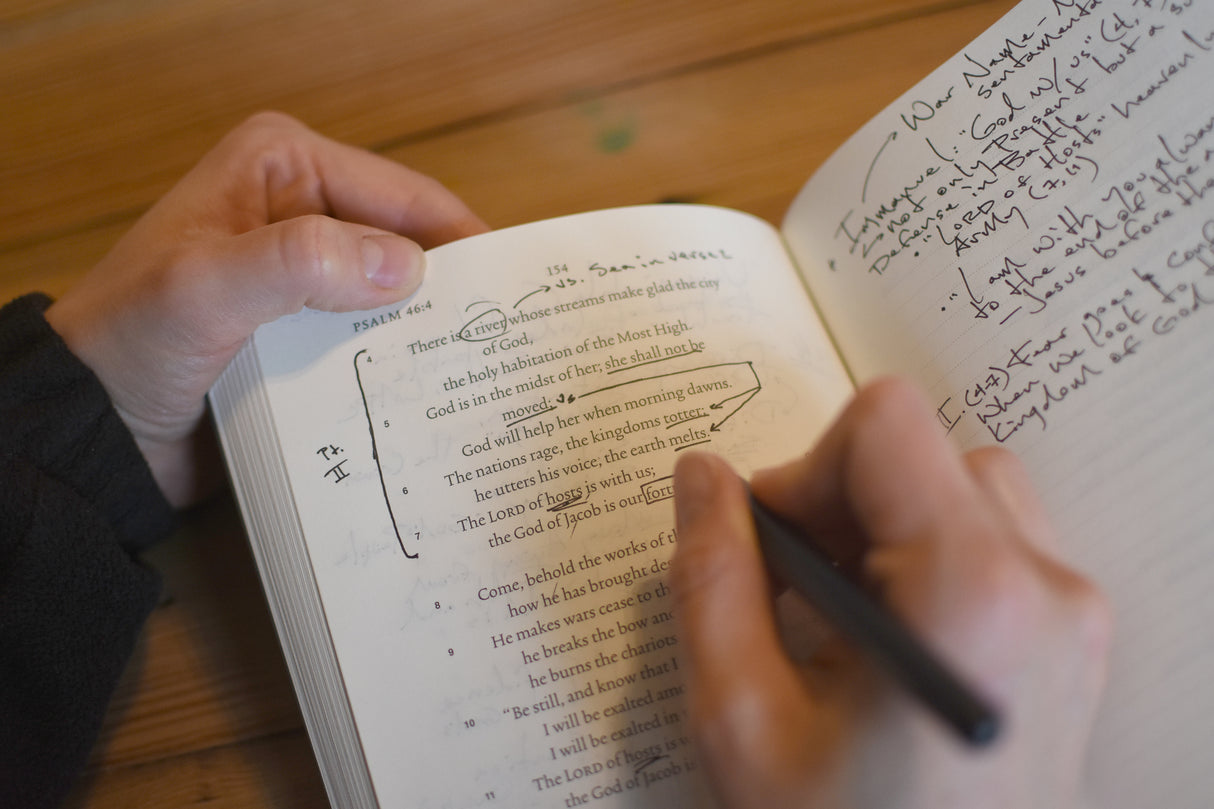 154
vs. Sea in verse 2
PSALM 46:4
4 There is a river whose streams make glad the city
of God,
the holy habitation of the Most High.
5 God is in the midst of her; she shall not be
moved; vs
God will help her when morning dawns.
6 The nations rage, the kingdoms totter;
he utters his voice, the earth melts.
7 The LORD of hosts is with us;
the God of Jacob is our
Pt.
II
8 Come, behold the works of
how he has brought
9 He makes wars cease to
he breaks the bow and
he burns the chariots
10 “Be still, and know that I
I will be exalted
I will be exalted in
11 The LORD of hosts is
the God of Jacob is
War Name -
Immanuel: "God w/ us" (4, 7,
not only present but a
Defense in Battle
• "LORD of Hosts" heaven
Army (7, 11)
• "I am with you always
to the end of the
- Jesus before the
II. (4-7) Fear goes
when we look to
Kingdom of God